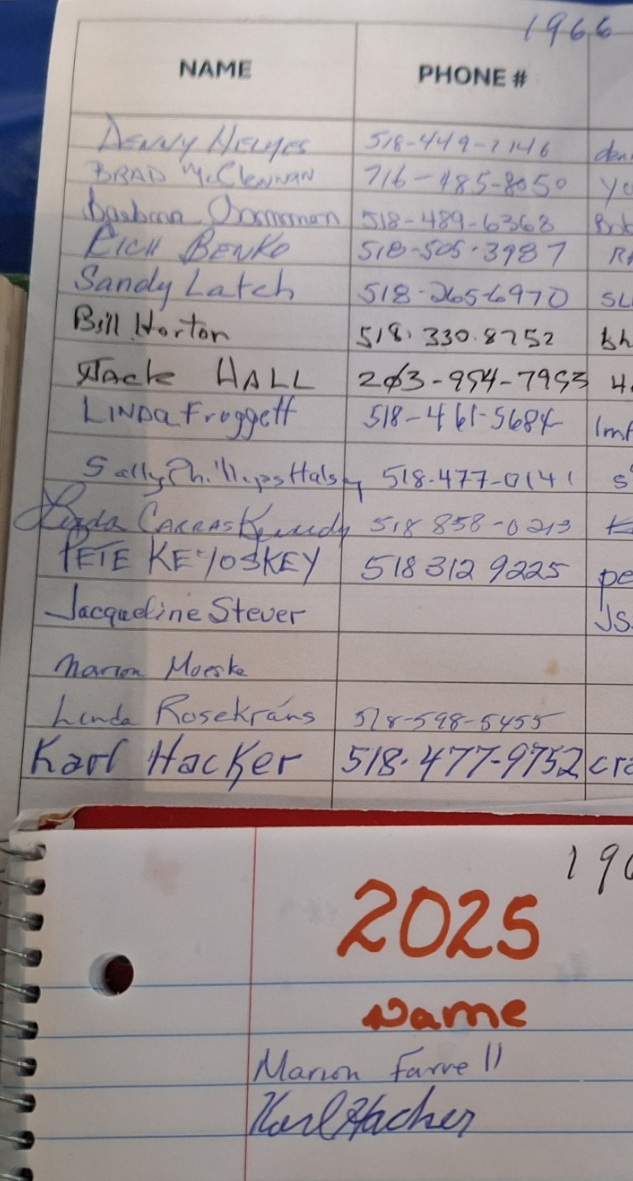 1966
NAME PHONE #
DENNY 518-449-7146
BRAD McClennan 716-485-8050
Barbara 518-489-6368
RICH BENKO 518-505-3987
Sandy Latch 518-265-6970 SL
Bill Horton 518.330.8752 bh
Jack HALL 203-994-7953
LINDA Froggett 518-461-5684 lmf
Sally Phillips Halsey 518-477-0141 S
Linda CARRAS Kennedy 518 858-0213
PETE KEYOSKEY 518 312 9225 pe
Jacqueline Stever JS
Marion Moeske
Linda Rosekrans 518-598-5455
Karl Hacker 518-477-9752 cra
196
2025
Name
Marion Farrell
Karl Hacker